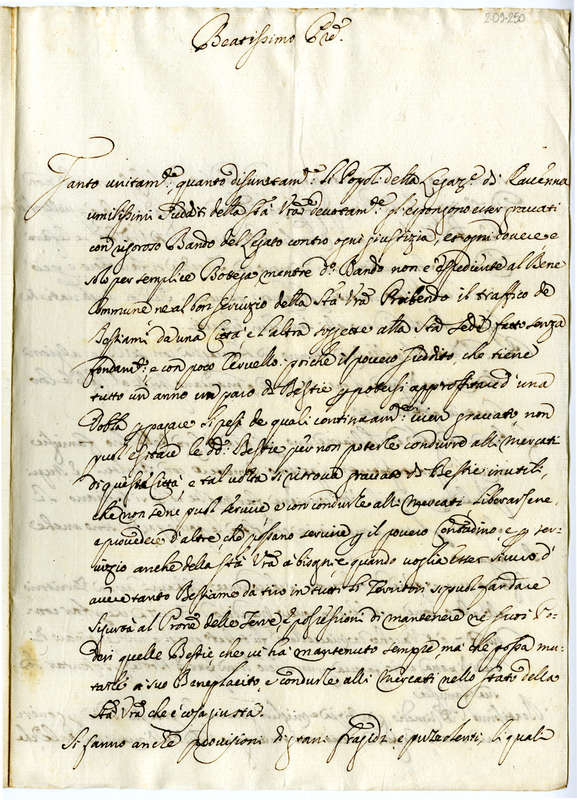 2-09-250
Beatissimo Prē.
Tanto unitam.te, quanto disunitam.te li Popoli della Legaz.e di Ravenna
umilissimi Sudditi della Stà Vrã devotam.te esser gravati
con rigoroso Bando del Legato contro ogni giustizia, et ogni dovere e
solo per semplice mentre d.o Bando non è espediente al Bene
Commune ne al bon Servizio della Stà Vrã Proibendo il traffico de
Bestiami da una Città e l'altra soggette alla Stã Sede fatto senza
fondam.to e con poco Cervello: poiche il povero Suddito che tiene
tutto un anno un paro di Bestie p potersi approffittare d'una
Dobla p pagare li pesi de quali continuam.te vien gravato non
puol esitare le dd.e Bestie per non poterle condurre alli Mercati
di questa Città, e tal volta si ritrova gravato di Bestie inutili
che non se ne puol servire e con condurle alli Mercati liberarsene,
e provedere d'altre che possano servire p il povero Contadino e p ser-
vizio anche della Stà Vrã a bisogni e quando voglia esser sicuro d'
avere tanto Bestiame da tiro in tutti li Territori si puol fardare
Sicurtà al Prone delle Terre, e possessioni di mantenere ne suoi Po-
deri quelle Bestie che vi hà mantenuto sempre ma che possa mu-
tarle a suo Beneplacito, e condurle alli Mercati nello stato della
Stà Vrã che è cosa giusta.
Si fanno anche provisioni di grani fragidi e puzzolenti, li quali